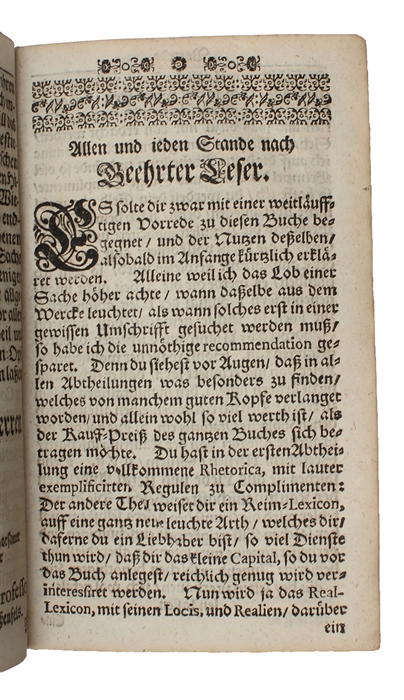 Allen und ieden Stande nach
Beehrter Leser.
ES solte dir zwar mit einer weitläuff-
tigen Vorrede zu diesen Buche be-
gegnet / und der Nutzen deßelben /
alsobald im Anfange kürtzlich erklä-
ret werden. Alleine weil ich das Lob einer
Sache höher achte / wann daßelbe aus dem
Wercke leuchtet / als wann solches erst in einer
gewissen Umschrifft gesuchet werden muß /
so habe ich die unnöthige recommendation ge-
sparet. Denn du stehest vor Augen / daß in al-
len Abtheilungen was besonders zu finden /
welches von manchem guten Kopfe verlanget
worden / und allein wohl so viel werth ist / als
der Kauff-Preiß des gantzen Buches sich be-
tragen möchte. Du hast in der ersten Abthei-
lung eine vollkommene Rhetorica, mit lauter
exemplificirten Regulen zu Complimenten:
Der andere Theil weiset dir ein Reim-Lexicon,
auff eine gantz neue leuchte Arth / welches dir /
daferne du ein Liebhaber bist / so viel Dienste
thun wird / daß dir das kleine Capital, so du vor
das Buch anlegest / reichlich genug wird ver-
interessiret werden. Nun wird ja das Real-
Lexicon, mit seinen Locis, und Realien / darüber
ein